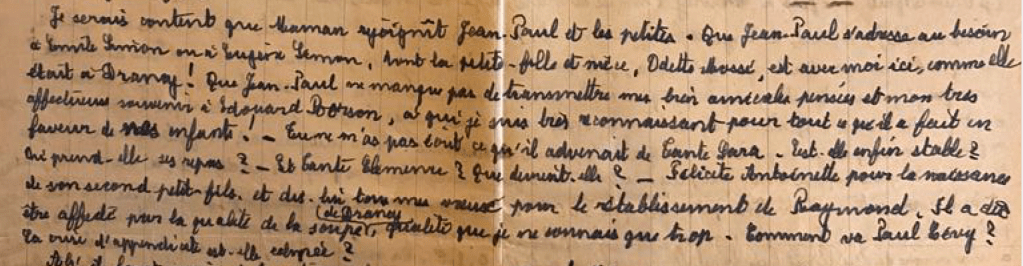 Je serais content que Maman rejoignît Jean-Paul et les petites. Que Jean-Paul s'adresse au besoin
à Emile Simon ou à Eugène Simon, dont la petite-fille et nièce, Odette Mossé, est avec moi ici, comme elle
était à Drancy ! Que Jean-Paul ne manque pas de transmettre mes bien amicales pensées et mon très
affectueux souvenir à Edouard, à qui je suis très reconnaissant pour tout ce qu'il a fait en
faveur de nos enfants ! - Tu ne m'as pas écrit ce qu'il advenait de Tante Sara. Est-elle enfin stable ?
Où prend-elle ses repas ? - Et Tante Clémence ? Que devient-elle ? - Félicite Antoinette pour la naissance
de son second petit-fils, et dis-lui tous mes vœux pour le rétablissement de Raymond. Il a dû
être affecté par la qualité de la soupe (de Drancy), qualité que je ne connais que trop. Comment va Paul Lévy ?
Ta crise d'appendicite est-elle calmée ?